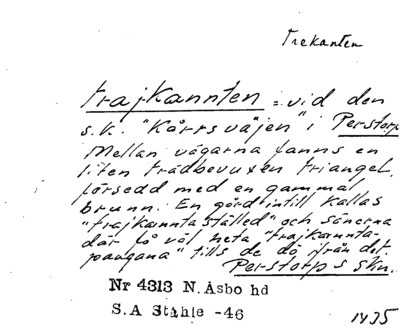 Trekanten
trajkannten = vid den
s.k. "Kårrsväjen" i Perstorp
Mellan vägarna fanns en
liten trädbevuxen triangel,
försedd med en gammal
brunn. En gård intill kallas
"trajkannta ställed" och sönerna
där få väl heta "trajkannta-
paugana" tills de dö från det
Perstorps skn.
Nr 4313 N. Åsbo hd
S.A Ståhle -46
1935